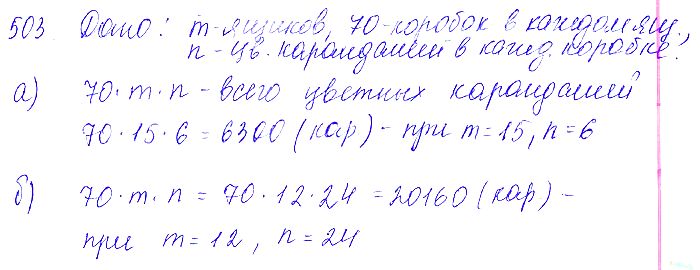 503 Дано: m-ящиков, 70-коробок в каждом ящ.,
n-цв. карандашей в кажд. коробке.
а) 70·m·n - всего цветных карандашей
70·15·6 = 6300 (кар) - при m=15, n=6
б) 70·m·n = 70·12·24 = 20160 (кар) -
при m=12, n=24